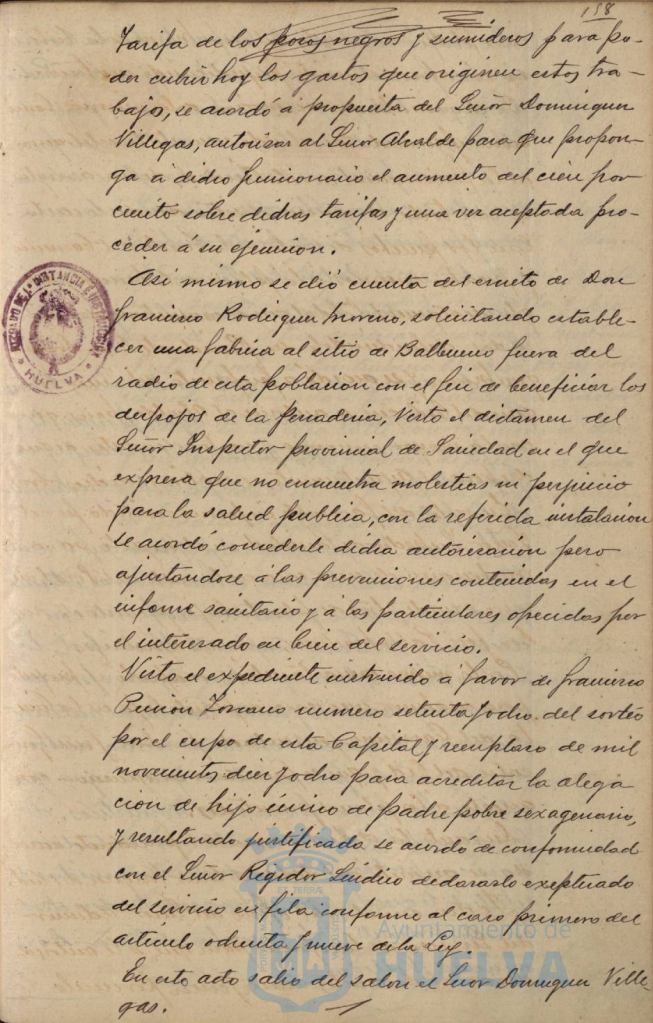 158
Tarifa de los posos negros y sumideros para po-
der cubrir hoy los gastos que originen estos tra-
bajos, se acordó á propuesta del Señor Dominguez
Villegas, autorizar al Señor Alcalde para que propon-
ga á dicho funcionario el aumento del cien por
ciento sobre dichas tarifas y una vez aceptada pro-
ceder á su ejecucion.
Asi mismo se dió cuenta del escrito de Don
Francisco Rodriguez Moreno, solicitando estable-
cer una fabrica al sitio de Balbueno fuera del
radio de esta poblacion con el fin de beneficiar los
despojos de la ganaderia, Visto el dictamen del
Señor Inspector provincial de Sanidad en el que
expresa que no encuentra molestias ni perjuicio
para la salud publica, con la referida instalacion
se acordó concederle dicha autorizacion pero
ajustandose á las prevenciones contenidas en el
informe sanitario y á las particulares ofrecidas por
el interesado en bien del servicio.
Visto el expediente instruido á favor de Francisco
Toscano numero setenta y ocho del sorteo
por el cupo de esta Capital y reemplazo de mil
novecientos diez y ocho para acreditar la alega
cion de hijo único de padre pobre sexagenario,
y resultando justificada se acordó de conformidad
con el Señor Regidor Sindico declararlo exeptuado
del servicio en fila conforme al caso primero del
articulo ochenta y nueve de la Ley.
En este acto salio del salon el Señor Dominguez Ville-
gas.
JUZGADO DE 1ª INSTANCIA E INSTRUCCION
HUELVA
Ayuntamiento de
HUELVA